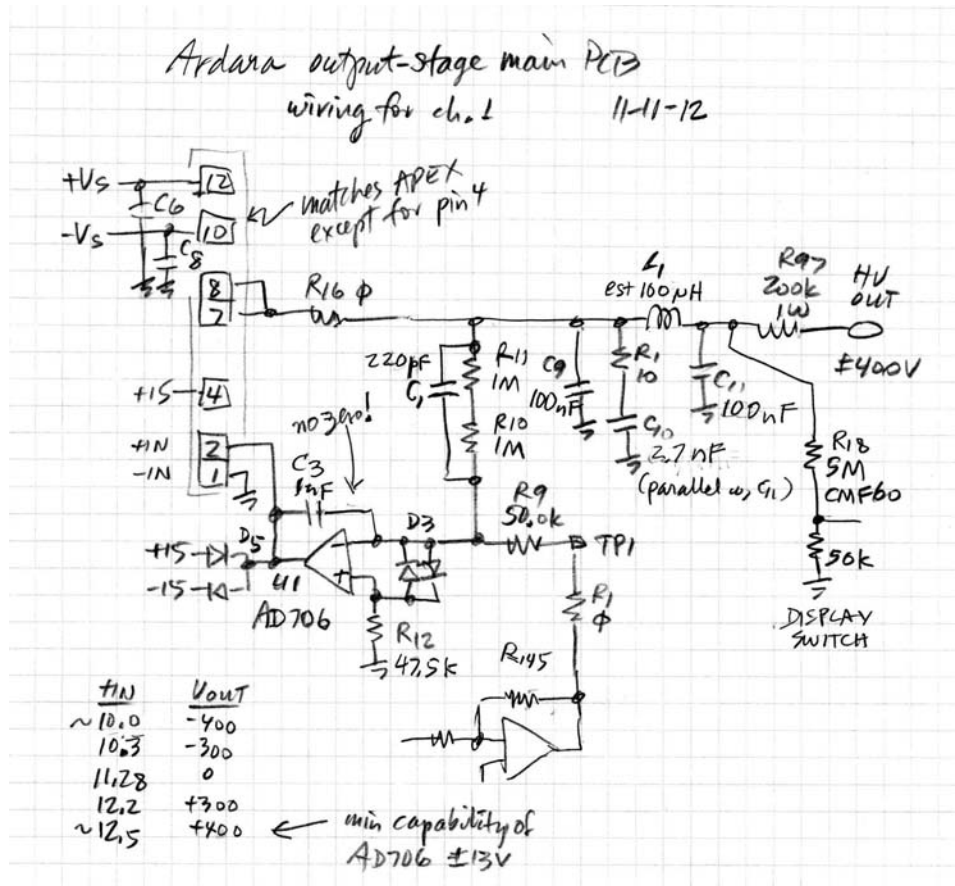 Ardara output-stage main PCB
wiring for ch. 1 11-11-12
+Vs
12
C6
matches APEX
except for pin 4
-Vs
10
C8
8
7
R16 Φ
L1
est 100μH
R97
200k
1W
HV
OUT
±400V
220pF
C1
R11
1M
R10
1M
C9
100nF
R1
10
C10
2.7nF
(parallel w/ C11)
C11
100nF
R18
5M
CMF60
50k
DISPLAY
SWITCH
+15
4
no zero!
+IN
2
-IN
1
C3
1nF
D3
R9
50.0k
TP1
+15
D5
-15
U1
AD706
R12
47.5k
R1
Φ
R145
+IN VOUT
~10.0 -400
10.3 -300
11.28 0
12.2 +300
~12.5 +400
min capability of
AD706 ±13V